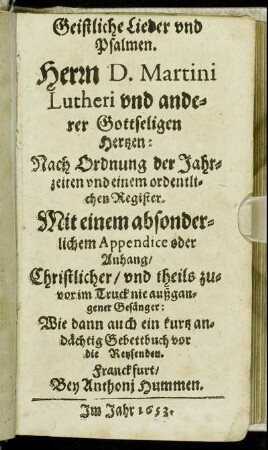 Geistliche Lieder vnd
Psalmen.
Herrn D. Martini
Lutheri vnd ande-
rer Gottseligen
Hertzen:
Nach Ordnung der Jahr-
zeiten vnd einem ordentli-
chen Register.
Mit einem absonder-
lichem Appendice oder
Anhang/
Christlicher/ vnd theils zu-
vor im Truck nie außgan-
gener Gesänger:
Wie dann auch ein kurtz an-
dächtig Gebettbuch vor
die Reysenden.
Franckfurt/
Bey Anthonj Hummen.
Im Jahr 1653.